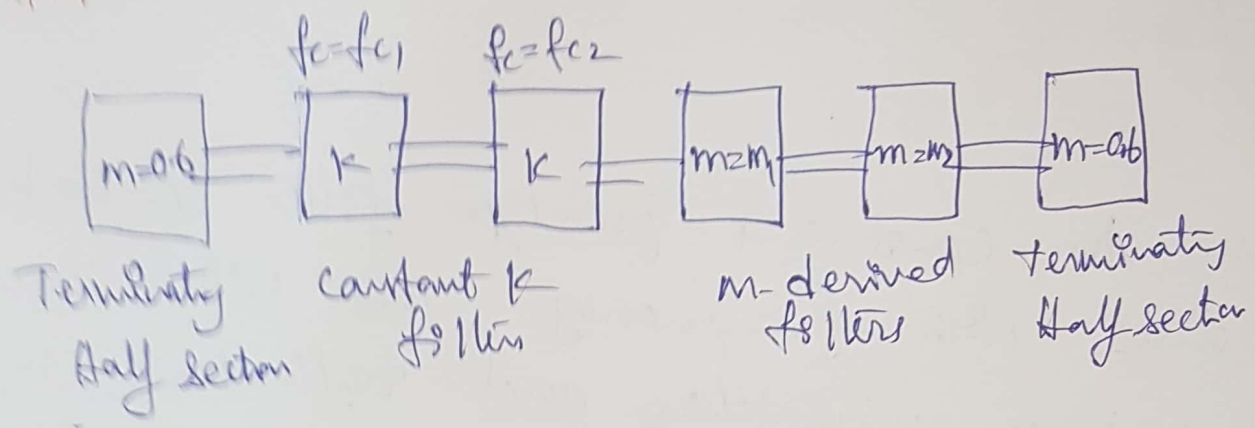 fc=fc1
fc=fc2
m=0.6
K
K
m=m1
m=m2
m=0.6
Terminatig
Half section
constant K
filters
m-derived
filters
terminatig
Half section